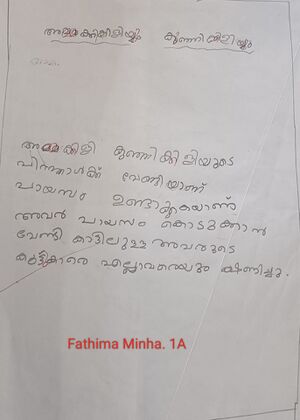 അമ്മക്കിളിയും കുഞ്ഞിക്കിളിയും
അമ്മക്കിളി കുഞ്ഞിക്കിളിയുടെ
പിറന്നാൾക്ക് വേണ്ടിയാണ്
പായസം ഉണ്ടാക്കുകയാണ്
അവൻ പായസം കൊടുക്കാൻ
വേണ്ടി കാട്ടിലുള്ള അവരുടെ
കൂട്ടുകാരെ എല്ലാവരെയും ക്ഷണിച്ചു.
Fathima Minha. 1A